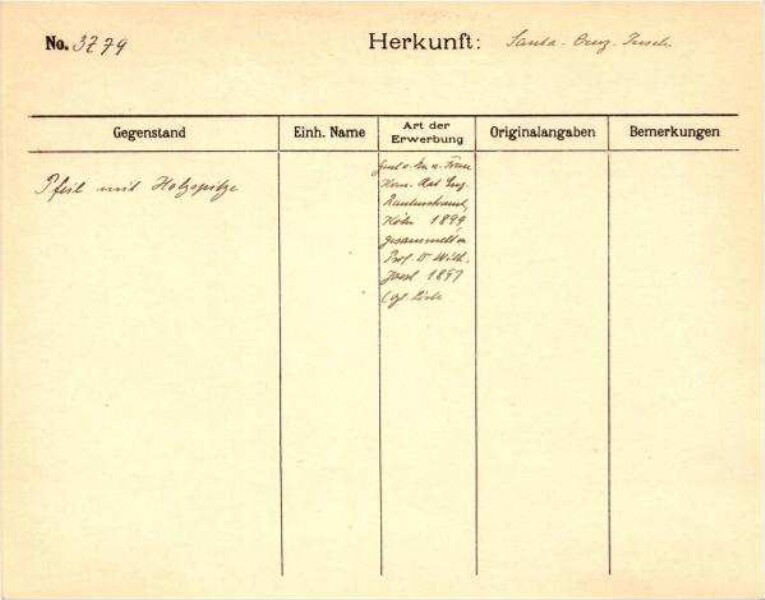 No. 3779
Herkunft: Santa-Cruz-Inseln
Gegenstand
Einh. Name
Art der Erwerbung
Originalangaben
Bemerkungen
Pfeil mit Holzspitze
Gesch. v. Hrn. u. Frau
Kom. Rat Eug.
Rautenstrauch,
Köln 1899,
gesammelt v.
Prof. Dr Wilh.
Joest 1897
(vgl. Liste